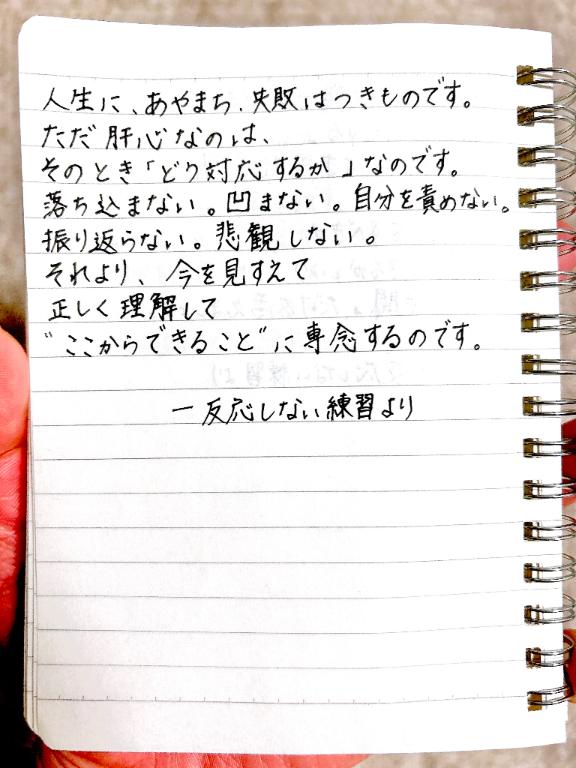 人生に、あやまち、失敗はつきものです。
ただ肝心なのは、
そのとき「どう対応するか」なのです。
落ち込まない。凹まない。自分を責めない。
振り返らない。悲観しない。
それより、今を見すえて
正しく理解して
"ここからできること"に専念するのです。
ー反応しない練習より